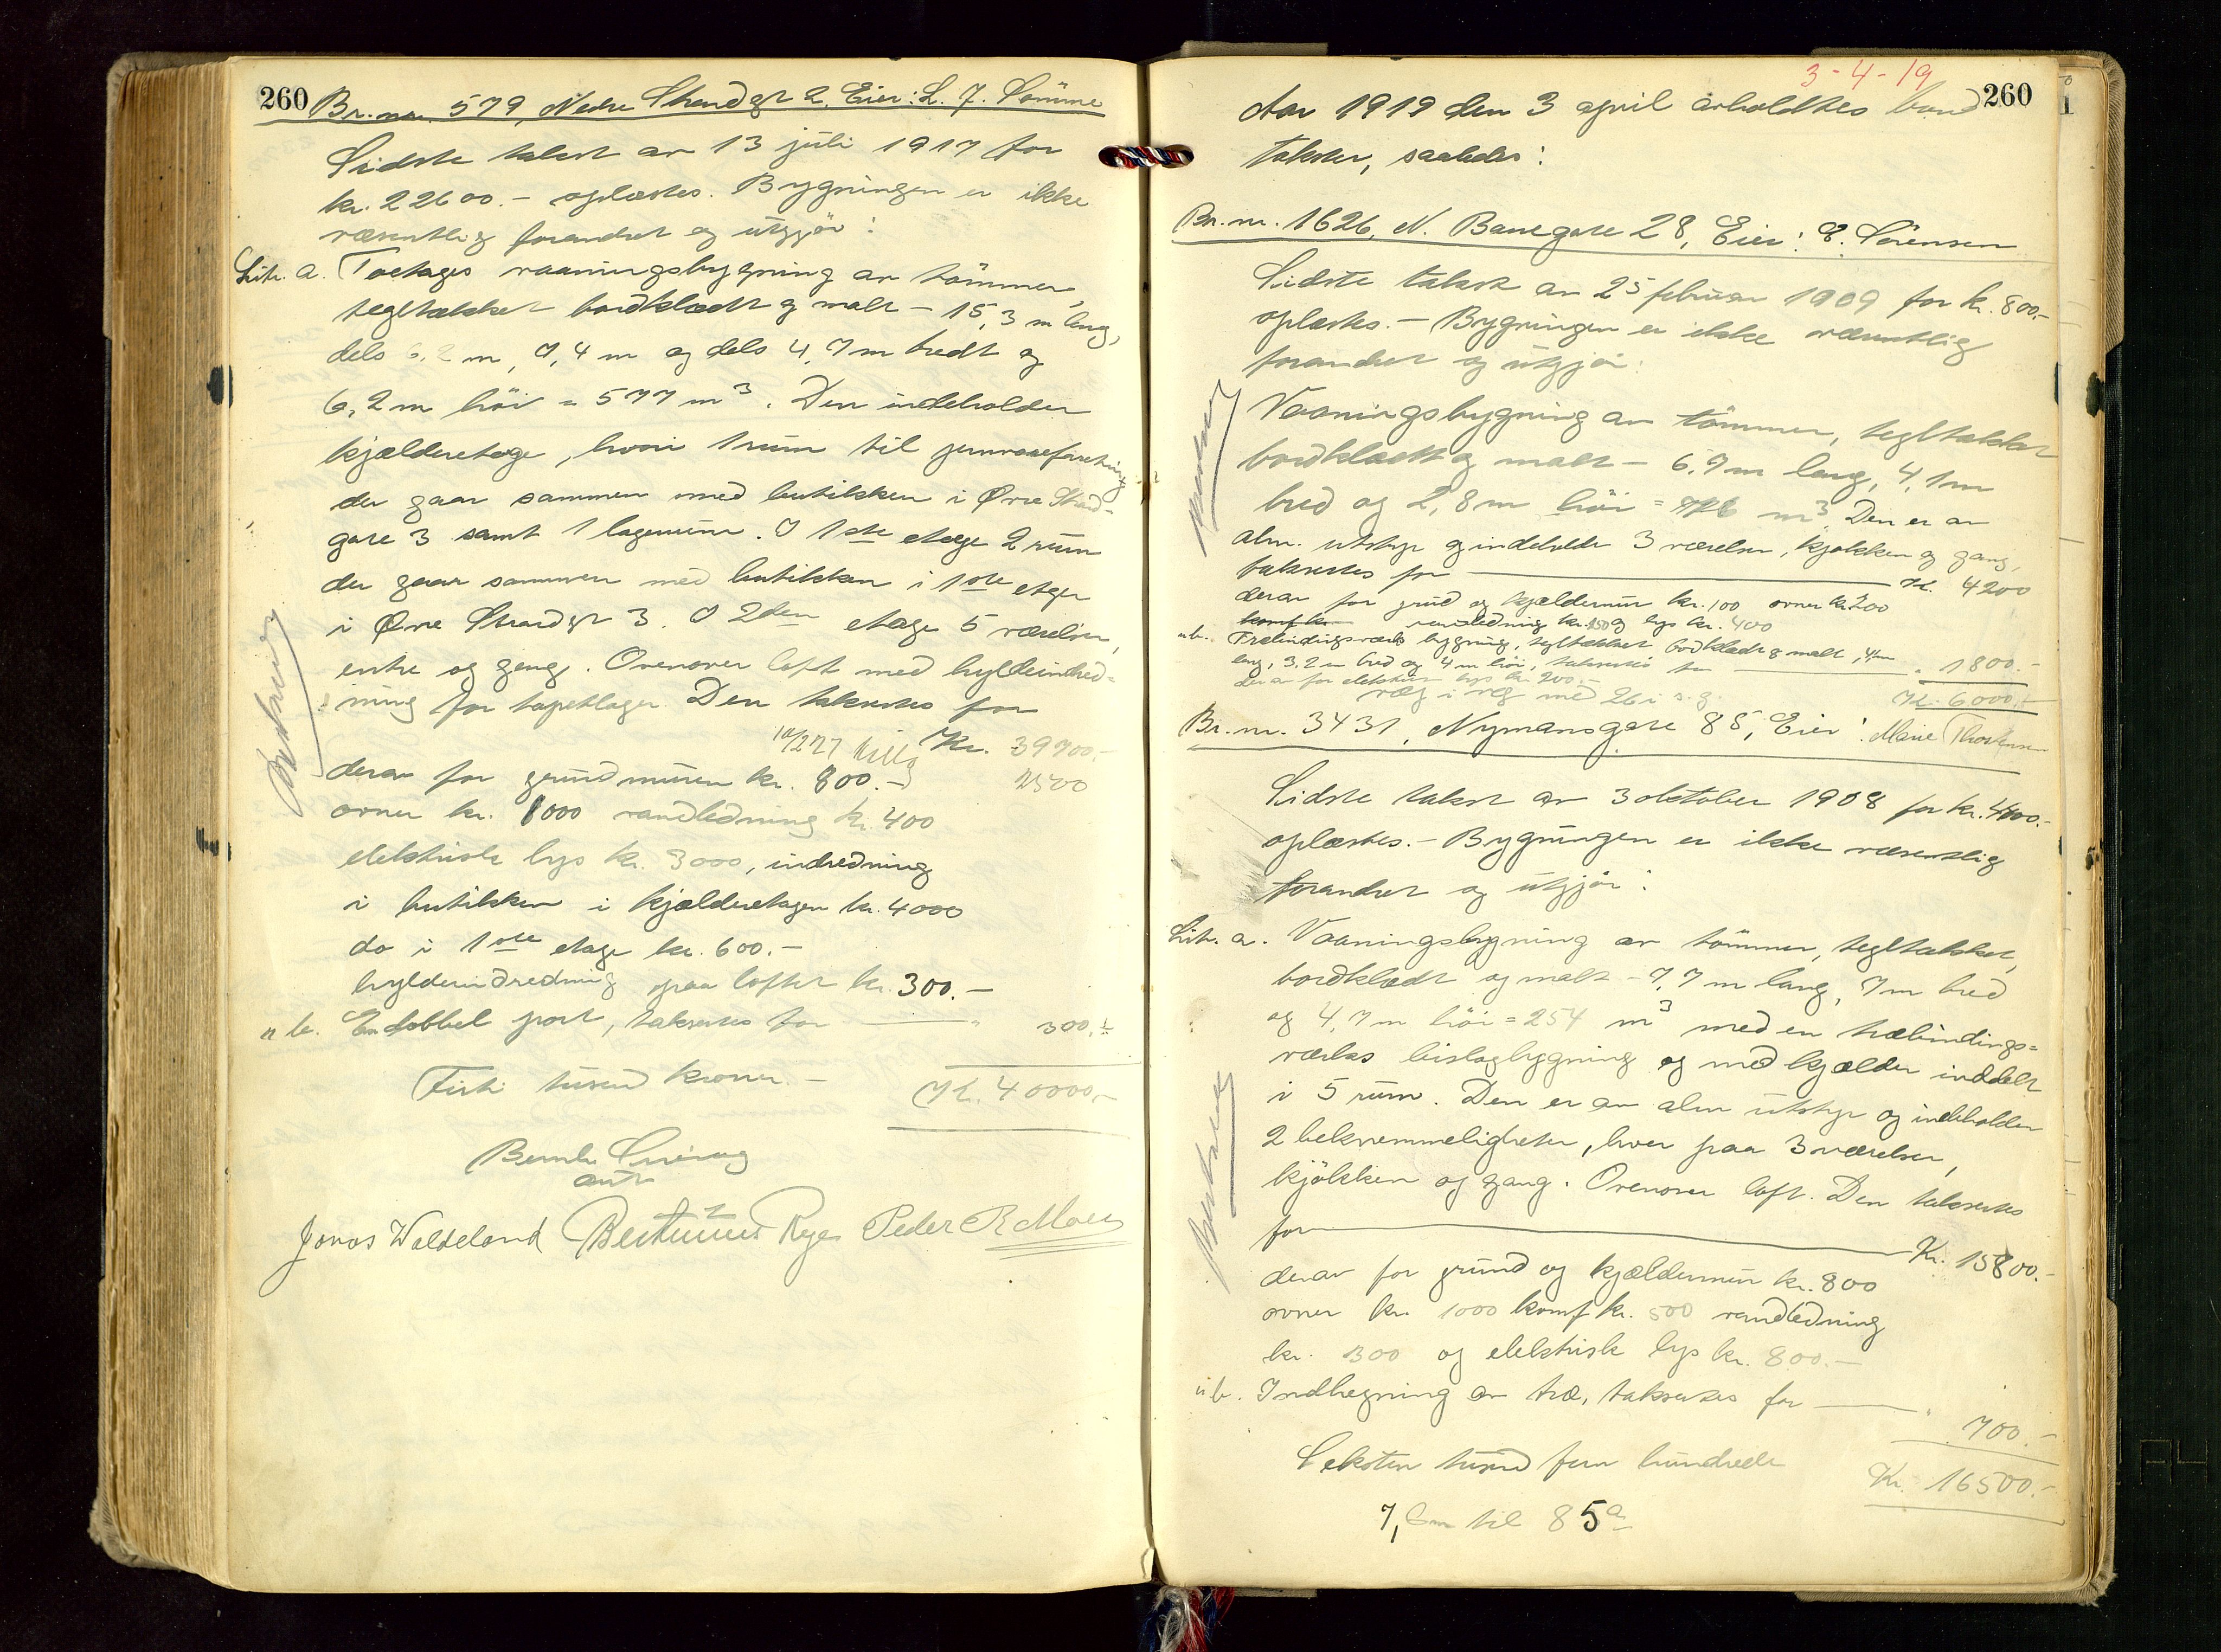 260
Br. nr. 579, Nedre Strandgt 2. Eier: L. J. Sømme
Sidste takst av 13 juli 1917 for
kr. 22600.- oplæstes. Bygningen er ikke
væsentlig forandret og utgjör:
Litr. a. Toetages vaaningsbygning av tömmer,
tegltækket bordklædt og malt - 15,3 m lang,
dels 6,2 m, 7,4 m og dels 4,7 m bredt og
6,2 m höi = 577 m³. Den indeholder
kjælderetage, hvori 1 rum til jernvareforetning
der gaar sammen med butikken i Øvre Strand-
gate 3 samt 1 lagerrum. I 1ste etage 2 rum
der gaar sammen med butikken i 1ste etage
i Øvre Strandgt 3. I 2den etage 5 værelser,
entre og gang. Ovenover loft med hyldeindred-
ning for tapetlager. Den takseres for
Kr. 39700.-
10/2 27 tillæg 2500
derav for grundmuren kr. 800.-
ovner kr. 1000 vandledning kr. 400
elektrisk lys kr. 3000, indredning
i butikken i kjælderetagen kr. 4000
do i 1ste etage kr. 600.-
hyldeindredning paa loftet kr. 300.-
" b. En dobbel port, takseres for " 300.-
Firti tusend kroner.- Kr. 40000.-
Jonas Waldeland Bertinius Rege Peder R Moe
3-4-19
260
Aar 1919 den 3 april avholdtes brand
takster, saaledes:
Br. nr. 1626, N. Banegate 28, Eier: E. Sörensen
Sidste takst av 25 februar 1909 for kr. 800.-
oplæstes.- Bygningen er ikke væsentlig
forandret og utgjör:
Vaaningsbygning av tömmer, tegltækket
bordklædt og malt - 6,7 m lang, 4,1 m
bred og 2,8 m höi = m³. Den er av
alm. utstyr og indeholder 3 værelser, kjøkken og gang,
takseres for Kr. 4200
derav for grund og kjældermur kr. 100 ovner kr. 200
komf kr. vandledning kr. 150 og lys kr. 400
" b. Træbindingsverks bygning, tegltækket bordklædt og malt, 4 m
lang, 3,2 m bred og 4 m höi, takseres for " 1800.-
derav for elektrisk lys kr. 200.-
væg i væg med 26 i s. g. Kr. 6000.-
Br. nr. 3431, Nymansgate 85, Eier: Marie Thorkensen
Sidste takst av 3 oktober 1908 for kr. 4400.-
oplæstes.- Bygningen er ikke væsentlig
forandret og utgjör:
Litr. a. Vaaningsbygning av tömmer, tegltækket,
bordklædt og malt - 7,7 m lang, 7 m bred
og 4,7 m höi = 254 m³ med en træbindings=
verks bislagbygning og med kjælder inddelt
i 5 rum. Den er av alm utstyr og indeholder
2 bekvemmeligheter, hver paa 3 værelser,
kjökken og gang. Ovenover loft. Den takseres
for Kr. 15800.-
derav for grund og kjældermur kr. 800
ovner kr. 1000 komf kr. 500 vandledning
kr. 300 og elektrisk lys kr. 800.-
" b. Indhegning av træ, takseres for " 700.-
Seksten tusend fem hundrede Kr. 16500.-
7, 6 m til 85a